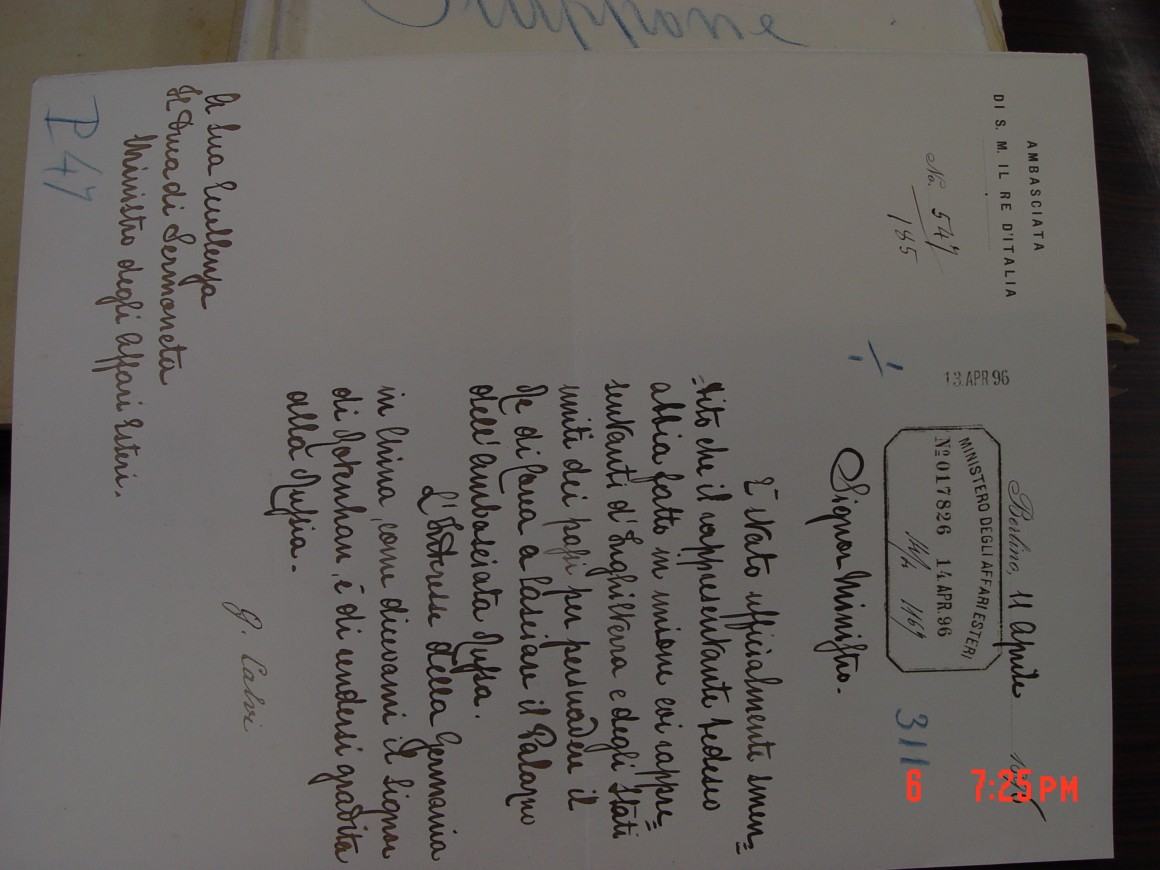 Giappone
AMBASCIATA
DI S. M. IL RE D'ITALIA
No. 547
185
13. APR 96
Berlino, 11 Aprile
MINISTERO DEGLI AFFARI ESTERI
Nº 017826 14 APR. 96
311
Signor Ministro.
È stato ufficialmente smen=
=tito che il rappresentante tedesco
abbia fatto in unione coi rappre=
sentanti d'Inghilterra e degli Stati
uniti dei passi per persuadere il
Re di Corea a lasciare il Palazzo
dell'ambasciata Russa.
L'Interesse della Germania
in China, come dicevami il Signor
di Rotenhan, è di rendersi gradita
alla Russia.
G. Calvi
A Sua Eccellenza
Il Duca di Sermoneta
Ministro degli Affari Esteri.
P 47
6 7:25 PM